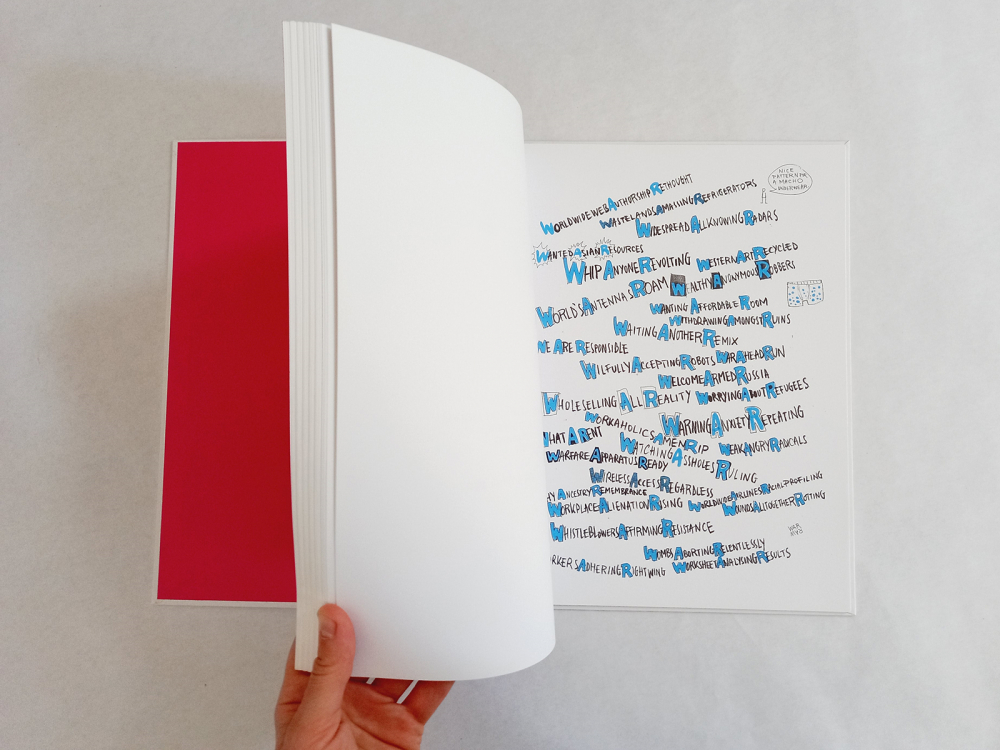 NICE
PATTERN FOR
A MACHO
WORLDWIDEWEB AUTHORSHIP RETHOUGHT
WASTELANDS AMASSING REFRIGERATORS
WIDESPREAD ALLKNOWING RADARS
WANTED ASIAN RESOURCES
WHIP ANYONE REVOLTING
WESTERN ART RECYCLED
WORLD'S ANTENNAS ROAM
WEALTHY ANONYMOUS ROBBERS
WANTING AFFORDABLE ROOM
WITHDRAWING AMONGST RUINS
WAITING ANOTHER REMIX
WE ARE RESPONSIBLE
WILFULLY ACCEPTING ROBOTS
WAR AHEAD RUN
WELCOME ARMED RUSSIA
WHOLESELLING ALL REALITY
WORRYING ABOUT REFUGEES
WORKAHOLICS AMEN RIP
WARNING ANXIETY REPEATING
HAT ARENT
WATCHING ASSHOLES RULING
WEAK ANGRY RADICALS
WARFARE APPARATUS READY
WIRELESS ACCESS REGARDLESS
AY ANCESTRY REMEMBRANCE
WORLDWIDE AIRLINES RACIAL PROFILING
WORKPLACE ALIENATION RISING
WOUNDS ALTOGETHER ROTTING
WHISTLEBLOWERS AFFIRMING RESISTANCE
WAR
WOMBS ABORTING RELENTLESSLY
RKERS ADHERING RIGHTWING
WORKSHEET ANALYSING RESULTS